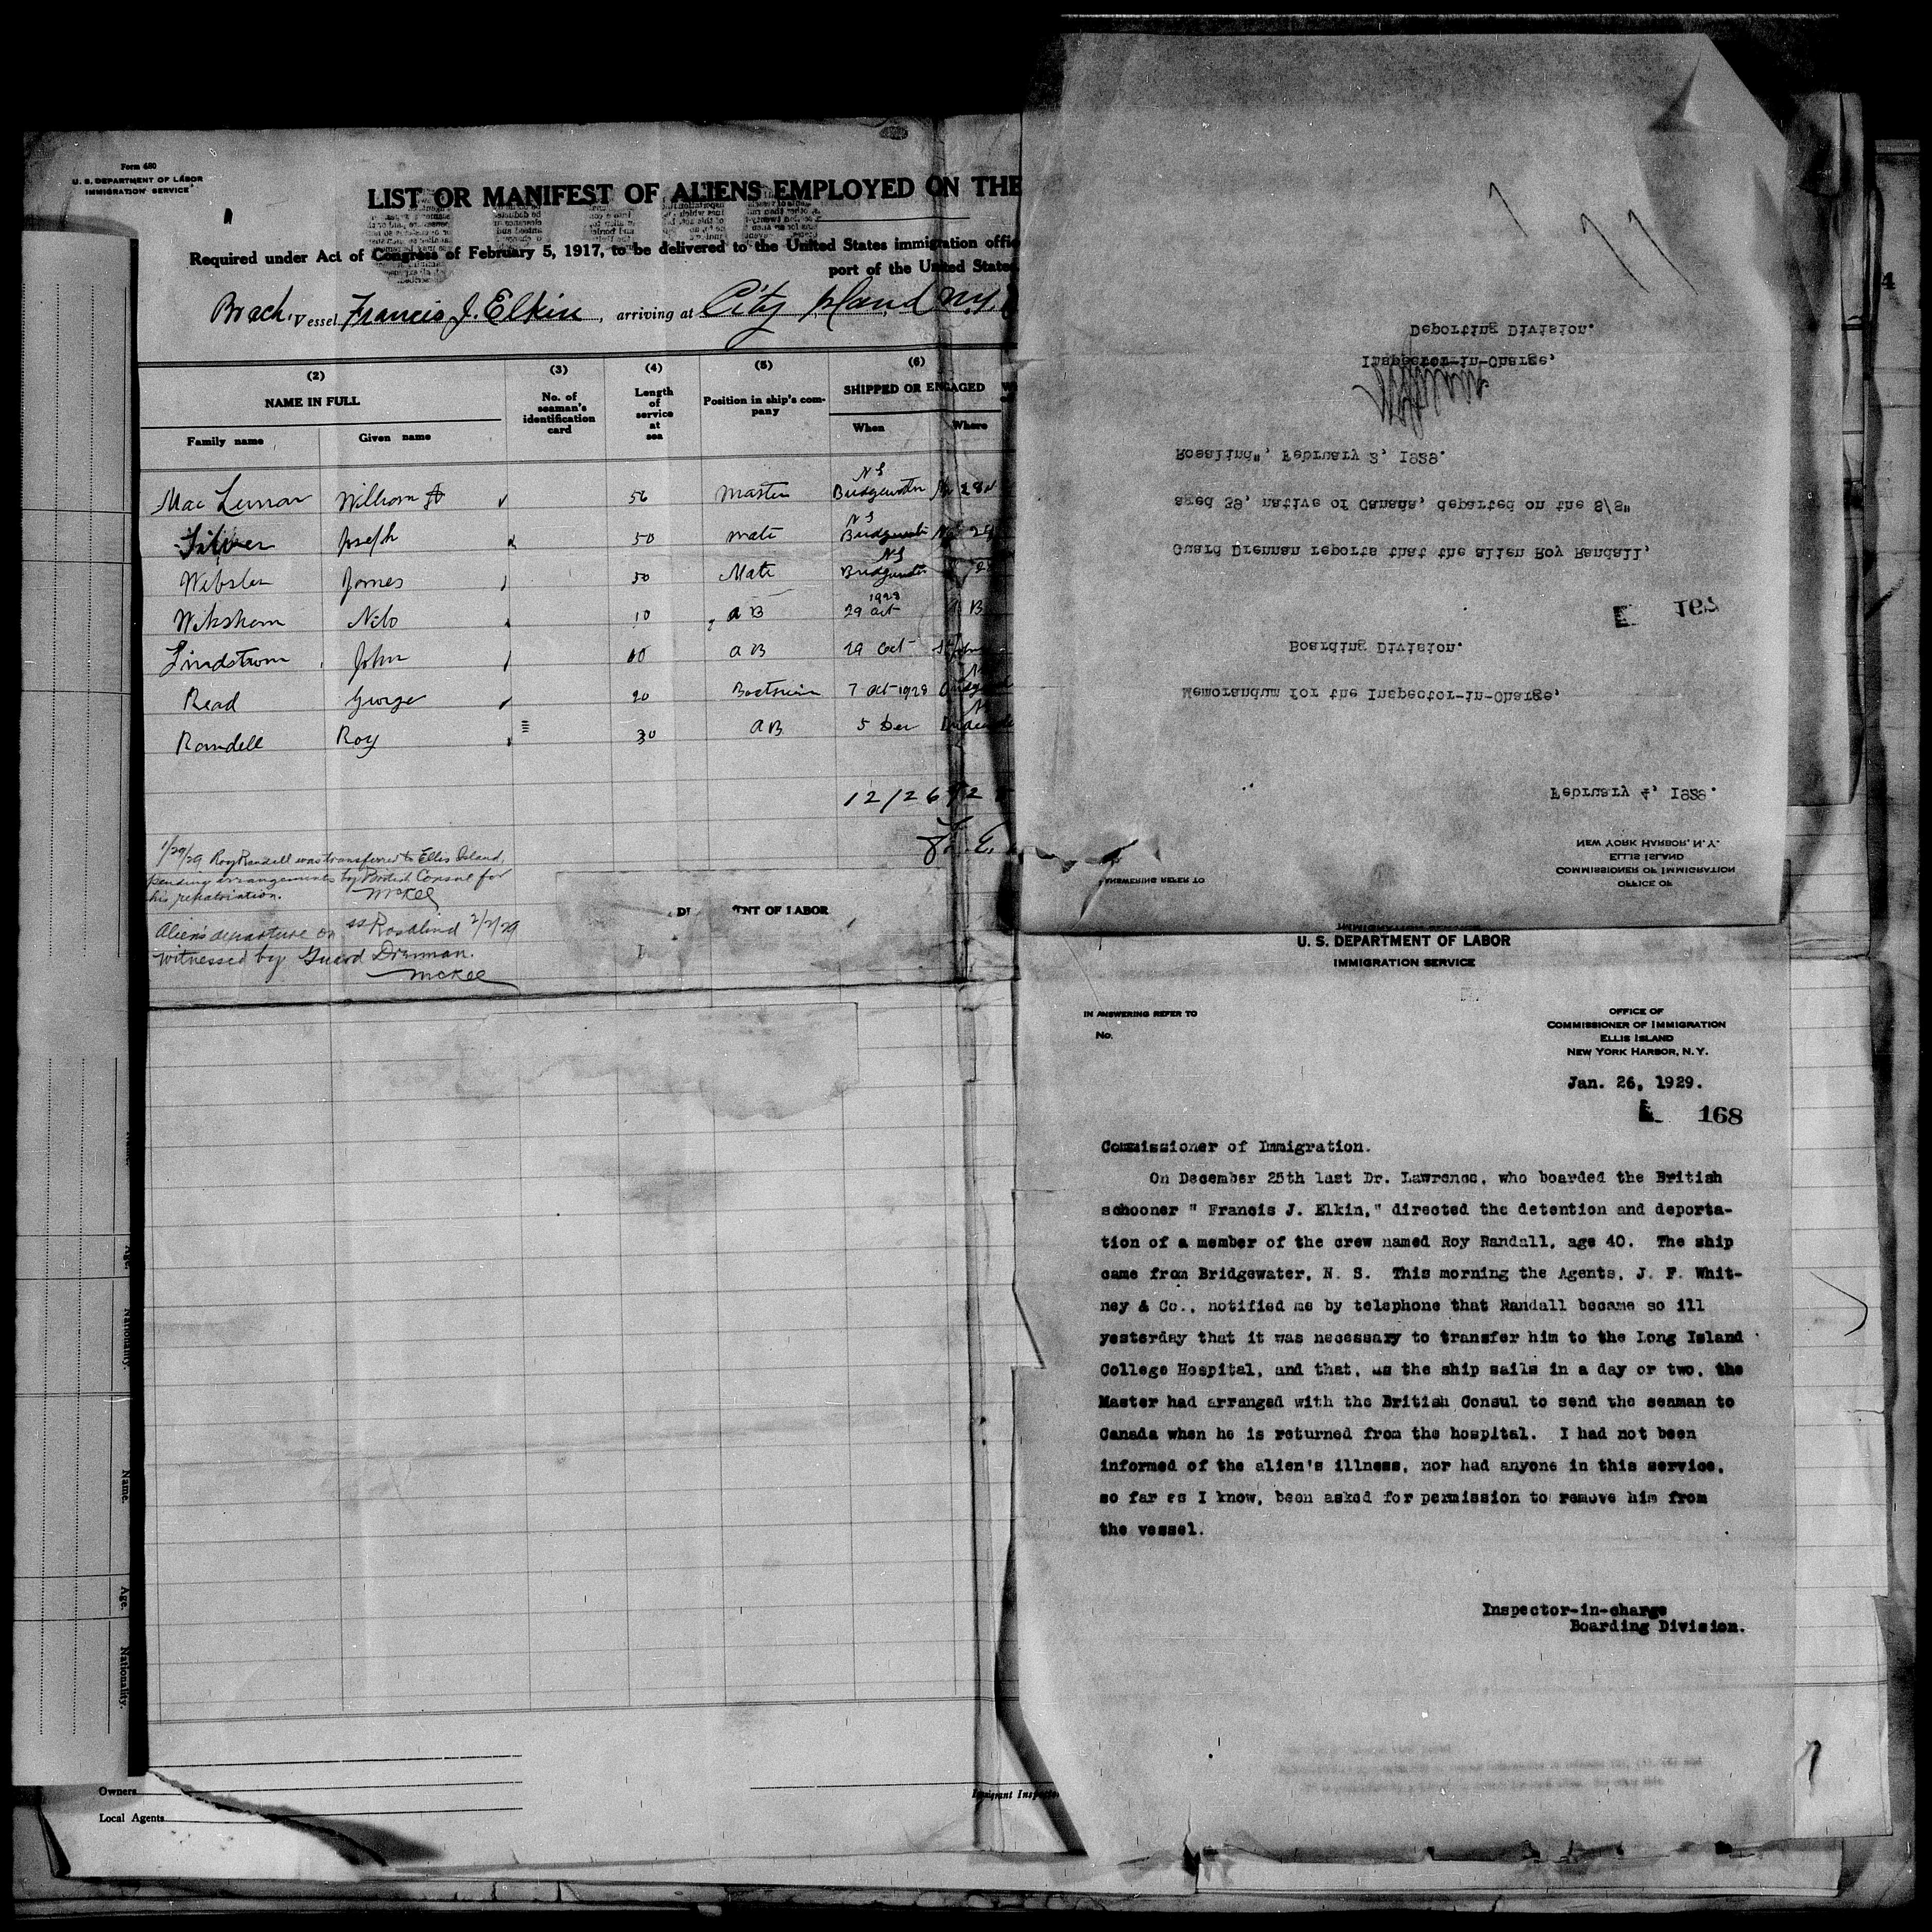 Form 680
U. S. DEPARTMENT OF LABOR
IMMIGRATION SERVICE
LIST OR MANIFEST OF ALIENS EMPLOYED ON THE
Required under Act of Congress of February 5, 1917, to be delivered to the United States immigration offic
port of the United States
Vessel Francis J. Elkin, arriving at City Island N.Y.
(2) (3) (4) (5) (6)
NAME IN FULL
No. of seaman's identification card
Length of service at sea
Position in ship's company
SHIPPED OR ENGAGED
Family name Given name When Where
N S
Mac Lennan William 56 Master Bridgewater
N S
Joseph 50 mate Bridgewater
N S
Webster James 50 Mate Bridgewater
1928
Niko 10 a B 29 oct
Lindstrom John 10 a B 29 Oct
Read George 20 7 Oct 1928
Randell Roy 30 a B 5 Dec
12/26/2
1/29/29 Roy Randell was transferred to Ellis Island,
pending arrangements by British Consul for
his repatriation. McKee
Alien's departure on ss Rosalind 2/2/29
witnessed by Guard Drennan.
McKee
NT OF LABOR
Age. Nationality. Name. Age. Nationality.
Owners
Local Agents
Immigrant Inspector
OFFICE OF
COMMISSIONER OF IMMIGRATION
ELLIS ISLAND
NEW YORK HARBOR, N.Y.
ANSWERING REFER TO
February 4, 1929.
Memorandum for the Inspector-in-Charge,
Boarding Division.
E 162
Guard Drennan reports that the alien Roy Randall,
aged 39, native of Canada, departed on the S/S"
Rosalind", February 2, 1929.
Inspector-in-Charge,
Deporting Division.
IMMIGRATION SERVICE
U. S. DEPARTMENT OF LABOR
IMMIGRATION SERVICE
IN ANSWERING REFER TO
No.
OFFICE OF
COMMISSIONER OF IMMIGRATION
ELLIS ISLAND
NEW YORK HARBOR, N.Y.
Jan. 26, 1929.
E 168
Commissioner of Immigration.
On December 25th last Dr. Lawrence, who boarded the British
schooner " Francis J. Elkin," directed the detention and deporta-
tion of a member of the crew named Roy Randall, age 40. The ship
came from Bridgewater, N. S. This morning the Agents, J. F. Whit-
ney & Co., notified me by telephone that Randall became so ill
yesterday that it was necessary to transfer him to the Long Island
College Hospital, and that, as the ship sails in a day or two, the
Master had arranged with the British Consul to send the seaman to
Canada when he is returned from the hospital. I had not been
informed of the alien's illness, nor had anyone in this service,
so far as I know, been asked for permission to remove him from
the vessel.
Inspector-in-charge
Boarding Division.
4